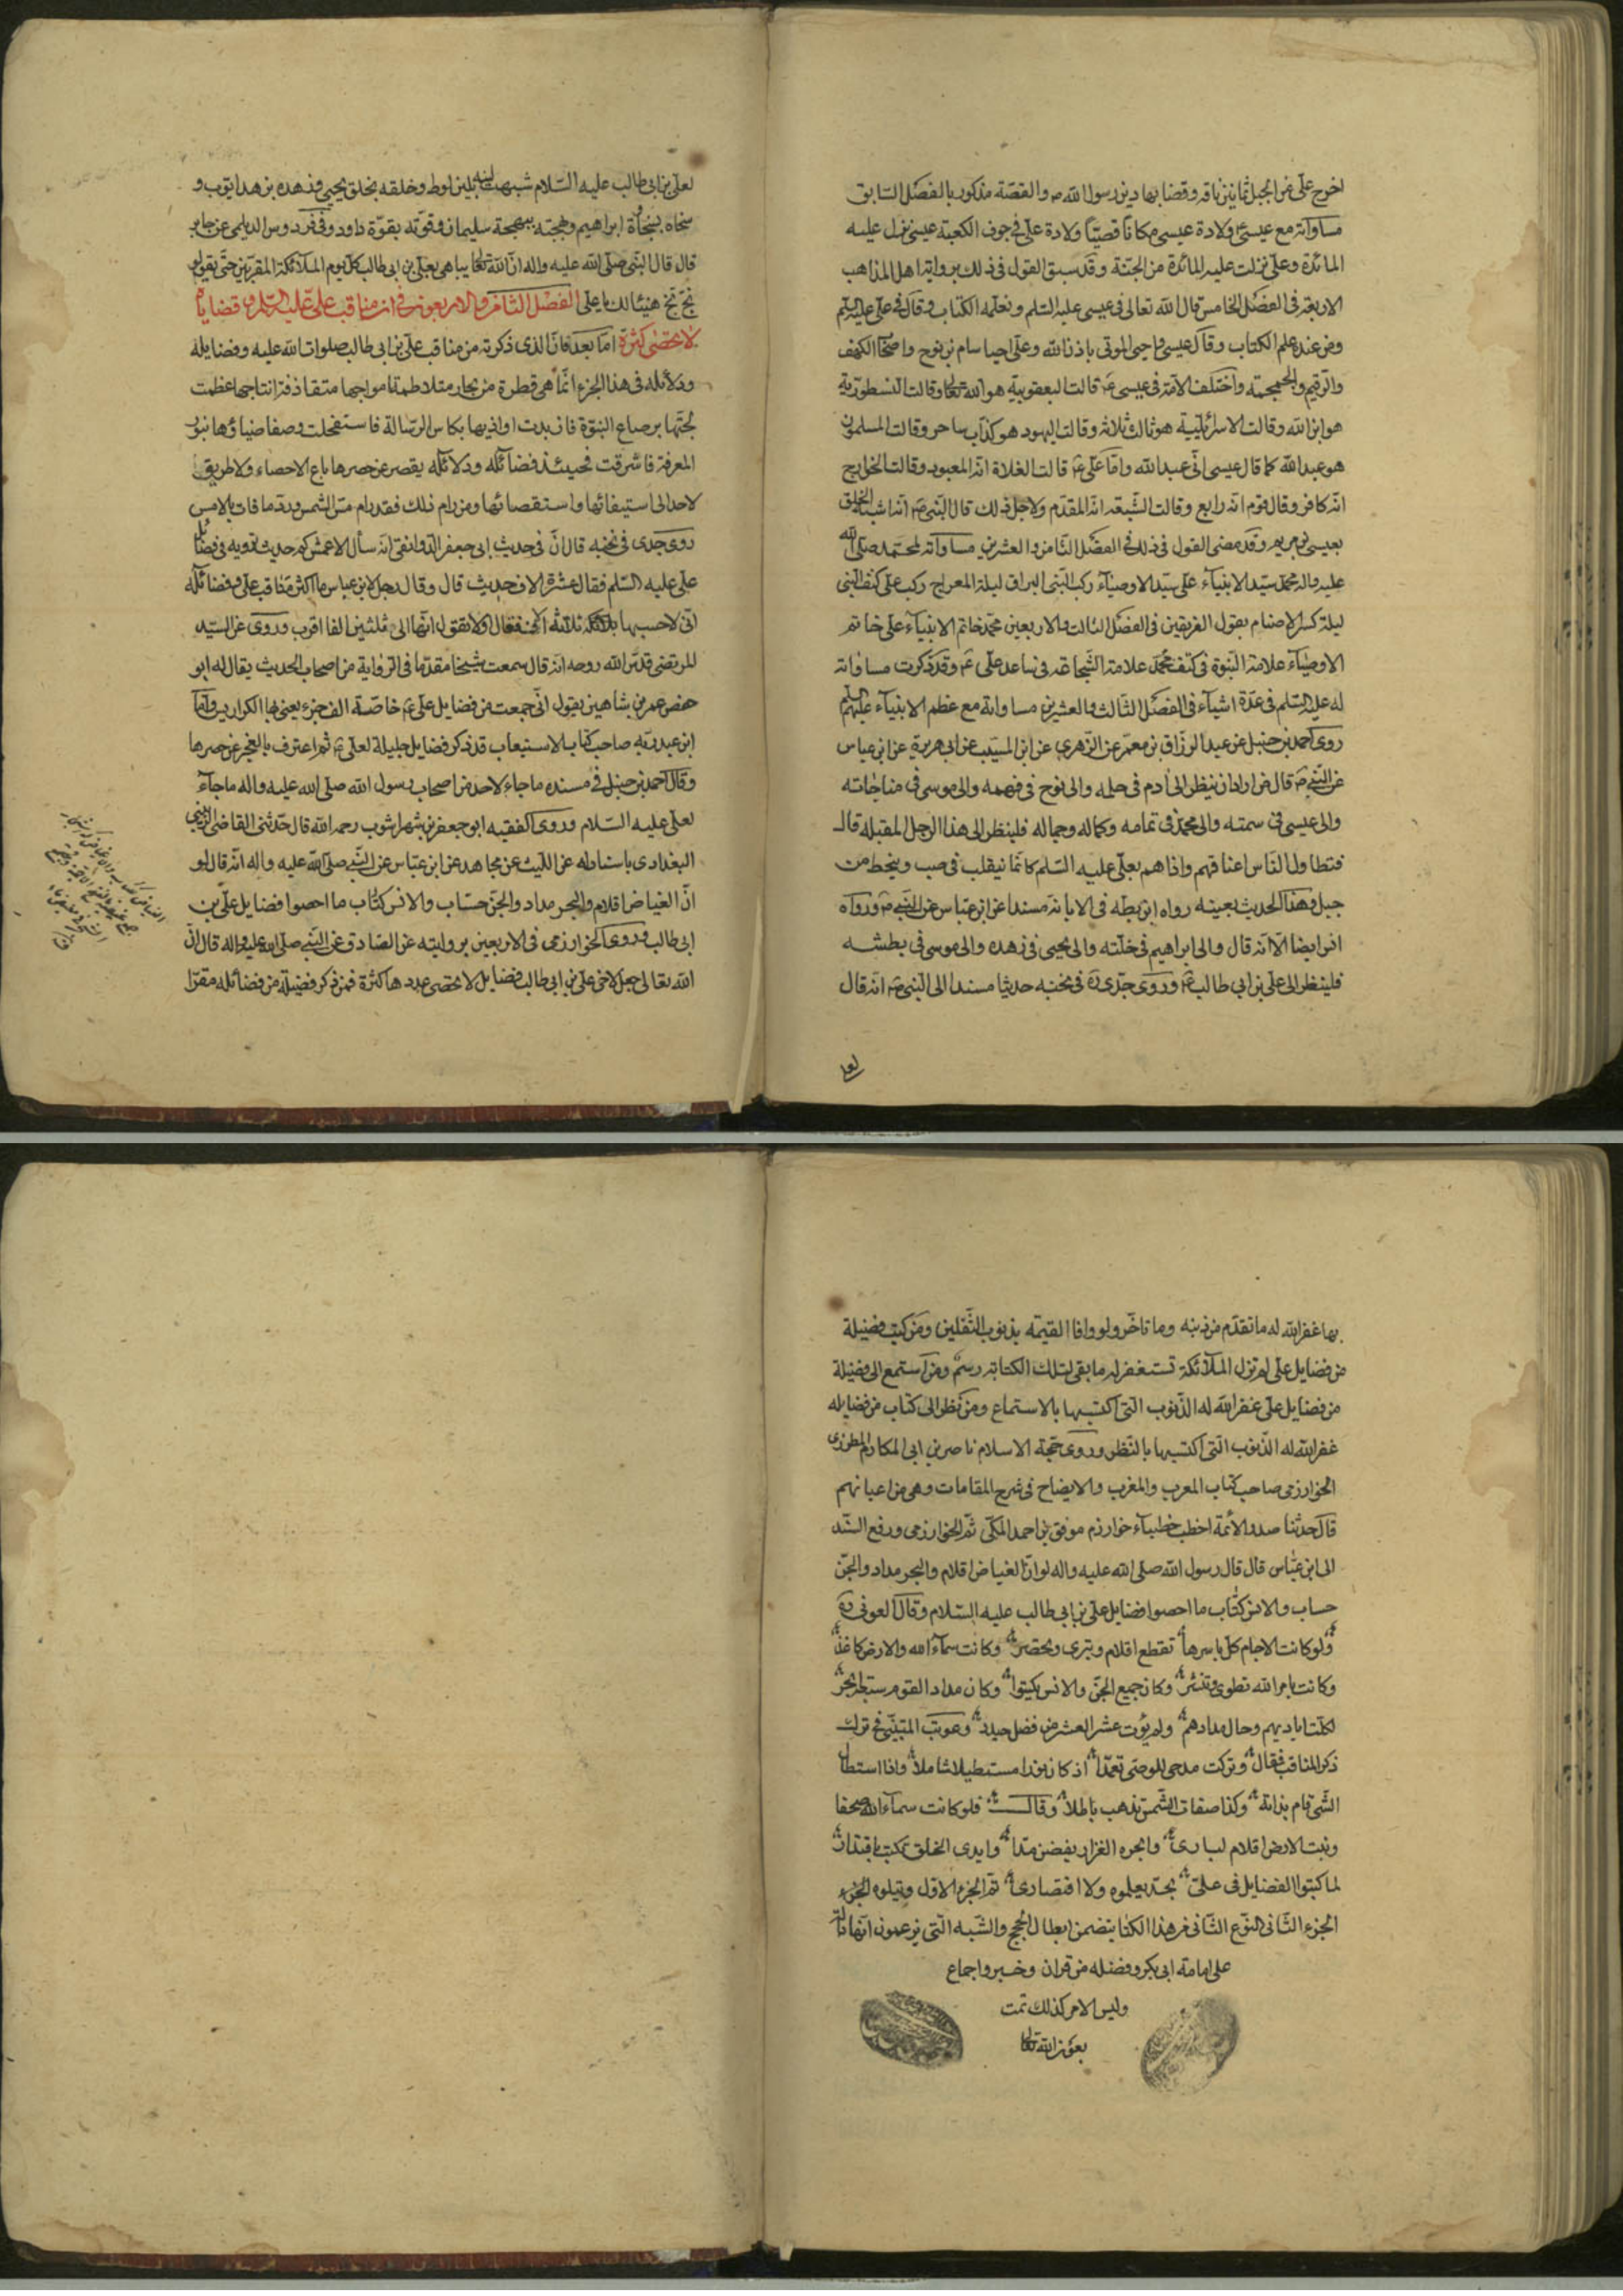 اخرج علی من الجبل ثمانین ناقه وقضا بها دین رسول الله ص والقصّة مذکور بالفصل السّابق
مساواته مع عیسی ع ولادة عیسی مکاناً قصیّاً ولادة علی فی جوف الکعبة عیسی نزل علیه
المائدة وعلی نزلت علیه المائدة من الجنّة وقد سبق القول فی ذلک بروایة اهل المذاهب
الاربعة فی الفصل الخامس قال الله تعالی فی عیسی علیه السّلم ونعلّمه الکتاب وقال فی علی علیه السّلم
ومن عنده علم الکتاب وقال عیسی واحیی الموتی باذن الله وعلی احیا سام بن نوح واصحاب الکهف
والرّقیم والجمجمة واختلف الامّة فی عیسی ع قالت الیعقوبیّة هو الله تعالی وقالت النسطوریّة
هو ابن الله وقالت الاسرائیلیّة هو ثالث ثلاثة وقالت الیهود هو کذّاب ساحر وقالت المسلمون
هو عبد الله کما قال عیسی انّی عبد الله وامّا علی ع قالت الغلاة انّه المعبود وقالت الخوارج
انّه کافر وقال قوم انّه رابع وقالت الشّیعة انّه المقدّم ولاجل ذلک قال النّبی ص انّه اشبه الخلق
بعیسی بن مریم وقد مضی القول فی ذلک فی الفصل الثّامن والعشرین مساواته لمحمّد صلّی الله
علیه واله محمّد سیّد الانبیآء علی سیّد الاوصیآء رکب النّبی البراق لیلة المعراج رکب علی کتف النّبی
لیلة کسر الاصنام بقول الفریقین فی الفصل الثالث والاربعین محمّد خاتم الانبیآء علی خاتم
الاوصیآء علامة النّبوة فی کتف محمّد علامة الشّجاعة فی ساعد علی ع وقد ذکرت مساواته
له علیه السّلم فی عدّة اشیآء فی الفصل الثّالث والعشرین مساواته مع عظم الانبیآء علیهم السلم
روی احمد بن حنبل عن عبد الرزّاق بن معمّر عن الزّهری عن ابن المسیّب عن ابی هریرة عن ابن عباس
عن النّبی ص قال من اراد ان ینظر الی ادم فی حلمه والی نوح فی فهمه والی موسی فی مناجاته
والی عیسی فی سمته والی محمّد فی تمامه وکماله وجماله فلینظر الی هذا الرّجل المقبل قال
فتطاول النّاس اعناقهم واذا هم بعلی علیه السّلم کانّما ینقلب فی صب وینحط من
جبل وهذا الحدیث بعینه رواه ابن بطه فی الابانة مسندا عن ابن عباس عن النّبی ص ورواه
انس ایضا الّا انّه قال والی ابراهیم فی خلّته والی یحیی فی زهده والی موسی فی بطشه
فلینظر الی علی بن ابی طالب ع وروی جدّی ره فی نخبه حدیثا مسندا الی النّبی ص انّه قال
لعلی
لعلی بن ابی طالب علیه السّلام شبهت لینه بلین لوط وخلقه بخلق یحیی وزهده بزهد ایّوب و
سخاه بسخاة ابراهیم وبهجته ببهجة سلیمان وقوّته بقوّة داود وفی فردوس الدیلمی عن جابر
قال قال النّبی صلّی الله علیه واله انّ الله تعالی یباهی بعلی بن ابی طالب کلّ یوم الملآئکة المقرّبین حتّی یقولو
بخّ بخ هنیئا لک یا علی الفصل الثامن والاربعون فی ان مناقب علی علیه السّلم و فضایله
لا تحصی کثرة امّا بعد فانّ الذی ذکرته من مناقب علی بن ابی طالب صلوات الله علیه وفضایله
ودلائله فی هذا الجزء انّما هی قطرة من بحار متلاطمة امواجها متقاذفة اثباجها عظمت
لجّتها برضاع النبوّة فان بدت اواذیها بکاس الرّسالة فاستفحلت وصفا ضیاؤها بنور
المعرفة فاشرقت فحینئذ فضائله ودلائله یقصر عن حصرها باع الاحصاء ولا طریق
لاحد الی استیفائها واستقصائها ومن رام ذلک فقد رام مسّ الشمس وردّ ما فات بالامس
روی جدی فی نخبه قال انّ فی حدیث ابی جعفر الدّوانقی انّه سأل الاعمش کم حدیث ترویه فی فضائل
علی علیه السّلم فقال عشرة الاف حدیث قال وقال رجل لابن عباس ما اکثر مناقب علی وفضائله
انّی لاحسبها ثلاثة الاف فقال اولا تقول انّها الی ثلثین الفا اقرب وروی عن السیّد
المرتضی قدّس الله روحه انّه قال سمعت شیخا مقدّما فی الرّوایة من اصحاب الحدیث یقال له ابو
حفص عمر بن شاهین یقول انّی جمعت من فضایل علی ع خاصّة الف جزء یعنی بها الکراریس وامّا
ابن عبد ربّه صاحب کتاب الاستیعاب قد ذکر فضایل جلیلة لعلی ع ثم اعترف بالعجز عن حصرها
وقال احمد بن حنبل فی مسنده ما جاء لاحد من اصحاب رسول الله صلّی الله علیه واله ما جاء
لعلی علیه السّلام وروی الفقیه ابو جعفر بن شهراشوب رحمه الله قال حدّثنی القاضی
البغدادی باسناده عن اللّیث عن مجاهد عن ابن عبّاس عن النّبی صلّی الله علیه واله انّه قال لو
انّ الغیاض اقلام والبحر مداد والجنّ حسّاب والانس کتّاب ما احصوا فضایل علی بن
ابی طالب وروی الخوارزمی فی الاربعین بروایته عن الصّادق عن النّبی صلّی الله علیه واله قال انّ
الله تعالی جعل لاخی علی بن ابی طالب فضایل لا تحصی عددها کثرة فمن ذکر فضیلة من فضائله مقرّا
بها غفر الله له ما تقدّم من ذنبه وما تاخّر ولو وافا القیمة بذنوب الثّقلین ومن کتب فضیلة
من فضایل علی لم تزل الملآئکة تستغفر له ما بقی لتلک الکتابة رسم ومن استمع الی فضیلة
من فضایل علی غفر الله له الذّنوب التی اکتسبها بالاستماع ومن نظر الی کتاب من فضایله
غفر الله له الذّنوب الّتی اکتسبها بالنّظر وروی حجّة الاسلام ناصر بن ابی المکارم المطرزی
الخوارزمی صاحب کتاب المعرب والمغرب والایضاح فی شرح المقامات وهی من اعیانهم
قال حدثنا صدر الائمة اخطب خطباء خوارزم موفق بن احمد المکّی ثمّ الخوارزمی ورفع السّند
الی ابن عبّاس قال قال رسول الله صلّی الله علیه واله لو انّ الغیاض اقلام والبحر مداد والجنّ
حساب والانس کتّاب ما احصوا فضایل علی بن ابی طالب علیه السّلام وقال العونی ره
ولو کانت الاجام کلّ باسرها تقطع اقلام وتبری وتحضر وکانت سمآء الله والارض کاغذ
وکانت بامر الله تطوی وتنشر وکان جمیع الجنّ والانس یکتبوا وکان مداد القوم سبعة ابحر
لکلّت ایادیهم وحال مدادهم ولم یؤت عشر العشر من فضل حیدر وعوتب المتنبّی فی ترک
ذکر المناقب فقال وترکت مدحی للوصی تعمّدا اذ کان نورا مستطیلا شاملا واذا استطال
الشّئ قام بذاته وکذا صفات الشّمس تذهب باطلا وقال فلو کانت سمآء الله صحفا
ونبت الارض اقلام لباری وابحره الغزار یفضن مدا وایدی الخلق تکتب باقتدار
لما کتبوا الفضایل فی علیّ بحدّ یعلموه ولا اقتصاری تمّ الجزء الاوّل ویتلوه الجزء
الجزء الثّانی النوع الثّانی من هذا الکتاب یتضمن ابطال الحجج والشّبه الّتی یزعمون انّها دالّة
علی امامة ابی بکر وفضله من قران وخبر واجماع
ولیس الامر کذلک تمت
بعون الله تعالی